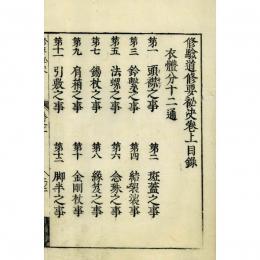 修驗道修要秘决卷上目錄
衣體分十二通
第一 頭襟之事 第二 斑蓋之事
第三 鈴繫之事 第四 結袈裟之事
第五 法螺之事 第六 念珠之事
第七 錫杖之事 第八 緣笈之事
第九 肩箱之事 第十 金剛杖之事
第十一 引敷之事 第十二 脚半之事